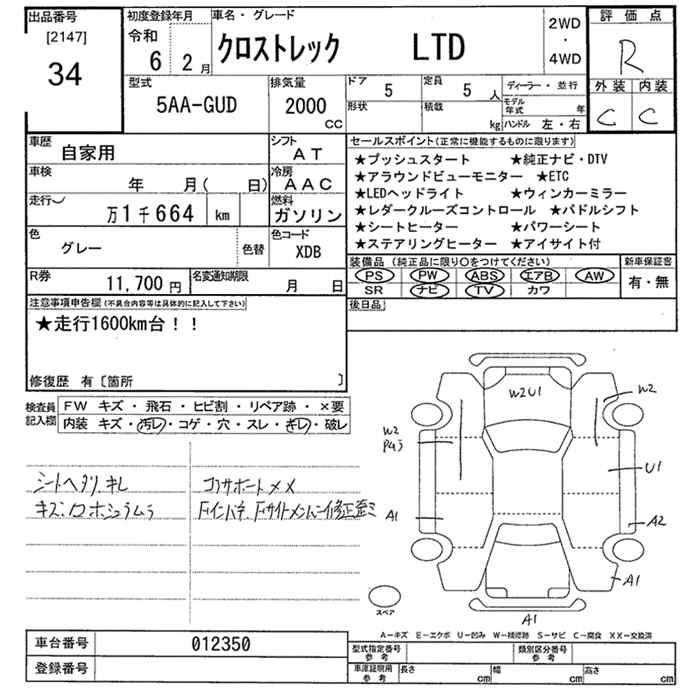 出品番号
[2147]
34
初度登録年月
令和
6 2月
車名・グレード
クロストレック LTD
2WD
・
4WD
評価点
R
外装 内装
C C
型式
5AA-GUD
排気量
2000
CC
ドア
5
定員
5 人
形状
積載
kg
ディーラー・並行
モデル年式 年
ハンドル 左・右
車歴
自家用
シフト
AT
車検
年 月( 日)
冷房
AAC
走行
万1千664 km
燃料
ガソリン
色
グレー
色替
色コード
XDB
R券
11,700円
名変通知期限
月 日
セールスポイント(正常に機能するものに限ります)
★プッシュスタート ★純正ナビ・DTV
★アラウンドビューモニター ★ETC
★LEDヘッドライト ★ウィンカーミラー
★レダークルーズコントロール ★パドルシフト
★シートヒーター ★パワーシート
★ステアリングヒーター ★アイサイト付
装備品(純正品に限り○をつけてください)
PS PW ABS エアB AW
SR ナビ TV カワ
新車保証書
有・無
後日品
注意事項申告欄(不具合内容等は具体的に記入して下さい)
★走行1600km台!!
修復歴 有〔箇所 〕
検査員記入欄
FW キズ・飛石・ヒビ割・リペア跡・×要
内装 キズ・汚レ・コゲ・穴・スレ・キレ・破レ
シートヘタリ、キレ
キズ、ロホショラムラ
コアサポートメメ
W2U1
W2
W2
U1
A1
A2
A1
A1
スペア
A-キズ E-エクボ U-凹み W-補修跡 S-サビ C-腐食 XX-交換済
車台番号
012350
登録番号
型式指定番号
参考
類別区分番号
参考
車庫証明用
参考
長さ cm
幅 cm
高さ cm